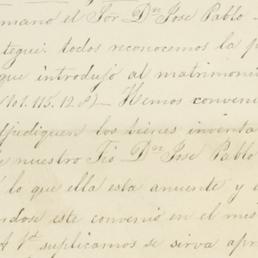 mano el Sor. Dn. Jose Pablo
tegui: todos reconocemos la p
que introdujó al matrimoni
101.115.12.8)— Hemos conveni
djudiquen los bienes inventa
e nuestro Tio Dn. Jose Pablo
lo que ella esta anuente y
dose este convenio en el mis
A Vd. suplicamos se sirva apr